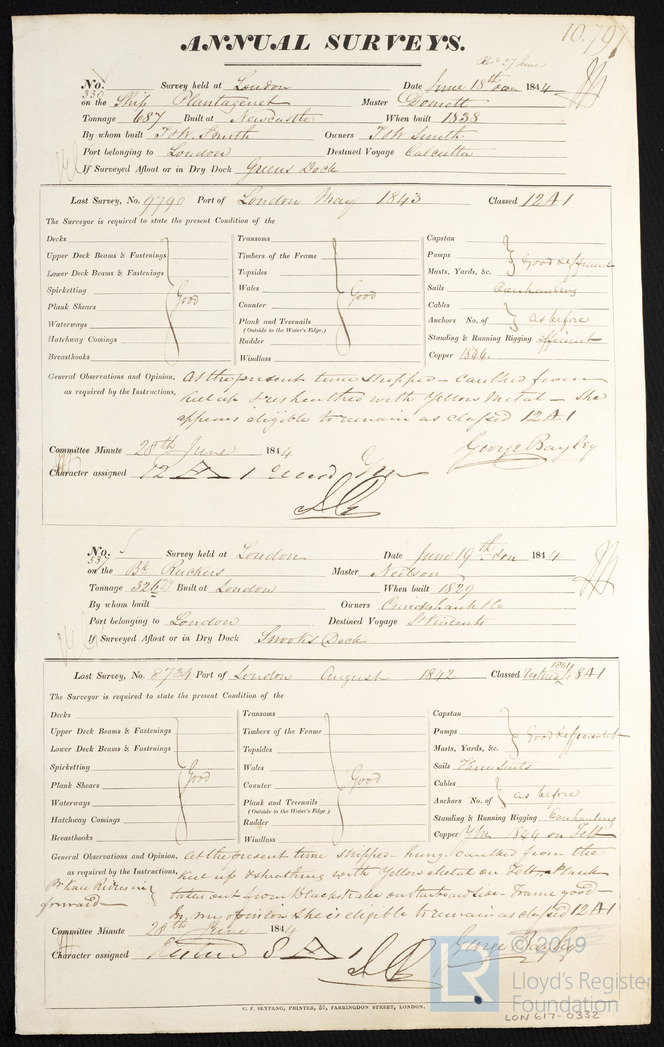 10.797
ANNUAL SURVEYS.
No. 330 Survey held at London Date June 18th 1844
on the Ship Plantagenet Master Domett
Tonnage 687 Built at Newcastle When built 1838
By whom built T & W. Smith Owners T & W Smith
Port belonging to London Destined Voyage Calcutta
If Surveyed Afloat or in Dry Dock Greens Dock
Last Survey, No. 9790 Port of London May 1843 Classed 12 A 1
The Surveyor is required to state the present Condition of the
Decks Transoms Capstan
Upper Deck Beams & Fastenings Timbers of the Frame Pumps Good & efficient
Lower Deck Beams & Fastenings Topsides Masts, Yards, &c.
Spirketting Wales Sails Overhauling
Plank Shears Good Counter Good Cables
Waterways Plank and Treenails Anchors No. of as before
(Outside to the Water's Edge.)
Hatchway Comings Rudder Standing & Running Rigging efficient
Breasthooks Windlass Copper 1844.
General Observations and Opinion, At the present time stripped - caulked from
as required by the Instructions, Keel up & resheathed with Yellow Metal - She
appears eligible to remain as classed 12 A 1
Committee Minute 28th June 1844 George Bayley
Character assigned 12 A 1
No. 537 Survey held at London Date June 19th 1844
on the Bk Ruckers Master Neilson
Tonnage 326 Built at London When built 1829
By whom built Owners Cruickshank & Co
Port belonging to London Destined Voyage St Vincents
If Surveyed Afloat or in Dry Dock Snooks Dock
Last Survey, No. 8734 Port of London August 1842 Classed 1841 8 A 1
The Surveyor is required to state the present Condition of the
Decks Transoms Capstan
Upper Deck Beams & Fastenings Timbers of the Frame Pumps Good & efficient
Lower Deck Beams & Fastenings Topsides Masts, Yards, &c.
Spirketting Wales Sails Three Suits
Plank Shears Good Counter Good Cables
Waterways Plank and Treenails Anchors No. of as before
(Outside to the Water's Edge.)
Hatchway Comings Rudder Standing & Running Rigging Overhauling
Breasthooks Windlass Copper Y.M. 1844 on Felt
General Observations and Opinion, At the present time stripped - caulked from the
as required by the Instructions, Keel up & sheathing with Yellow Metal on Felt. Plank
taken out Frame good -
forward In my opinion she is eligible to remain as classed 12 A 1
Committee Minute 28th June 1844
Character assigned 8 A 1 George Bayley
© 2019
LR
Lloyd's Register
Foundation
C. F. SEYFANG, PRINTER, 57, FARRINGDON STREET, LONDON.
LON 617-0332